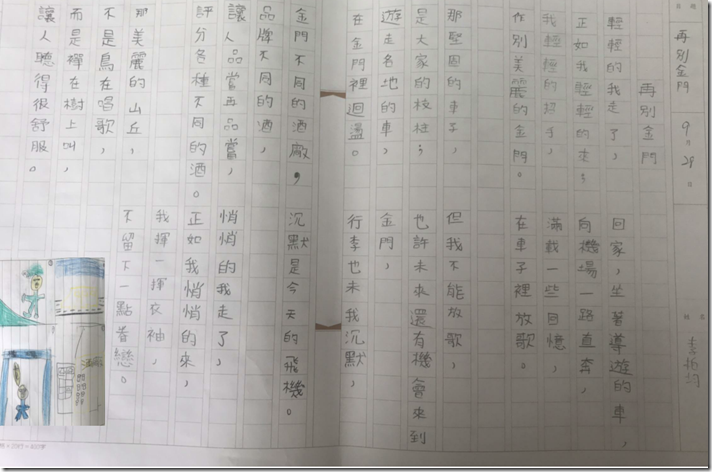 再別金門
9月29日
姓名
再別金門
輕輕的我走了，
正如我輕輕的來；
我輕輕的招手，
作別美麗的金門。
那堅固的車子，
是大家的枝柱；
遊走各地的車，
在金門裡迴盪。
金門不同的酒廠，
品牌不同的酒，
讓人品嘗再品嘗，
評分各種不同的酒。
那美麗的山丘，
不是鳥在唱歌，
而是禪在樹上叫，
讓人聽得很舒服。
回家，坐著導遊的車，
向機場一路直奔，
滿載一些回憶，
在車子裡放歌。
但我不能放歌，
也許未來還有機會來到
金門，
行李也未我沉默，
沉默是今天的飛機。
悄悄的我走了，
正如我悄悄的來，
我揮一揮衣袖，
不留下一點眷戀。